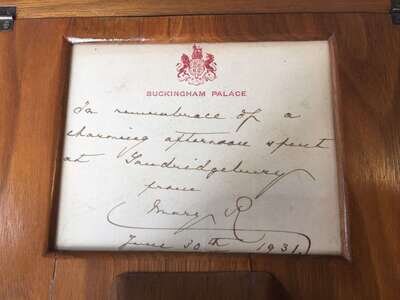 BUCKINGHAM PALACE
In remembrance of a
charming afternoon spent
at Sandridgebury
from
Mary R
June 30th 1931.